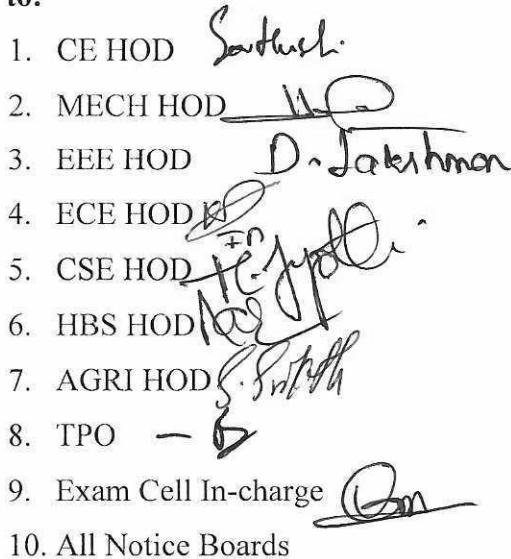 to:
1. CE HOD
2. MECH HOD
3. EEE HOD D. Lakshman
4. ECE HOD
5. CSE HOD
6. HBS HOD
7. AGRI HOD
8. TPO
9. Exam Cell In-charge
10. All Notice Boards